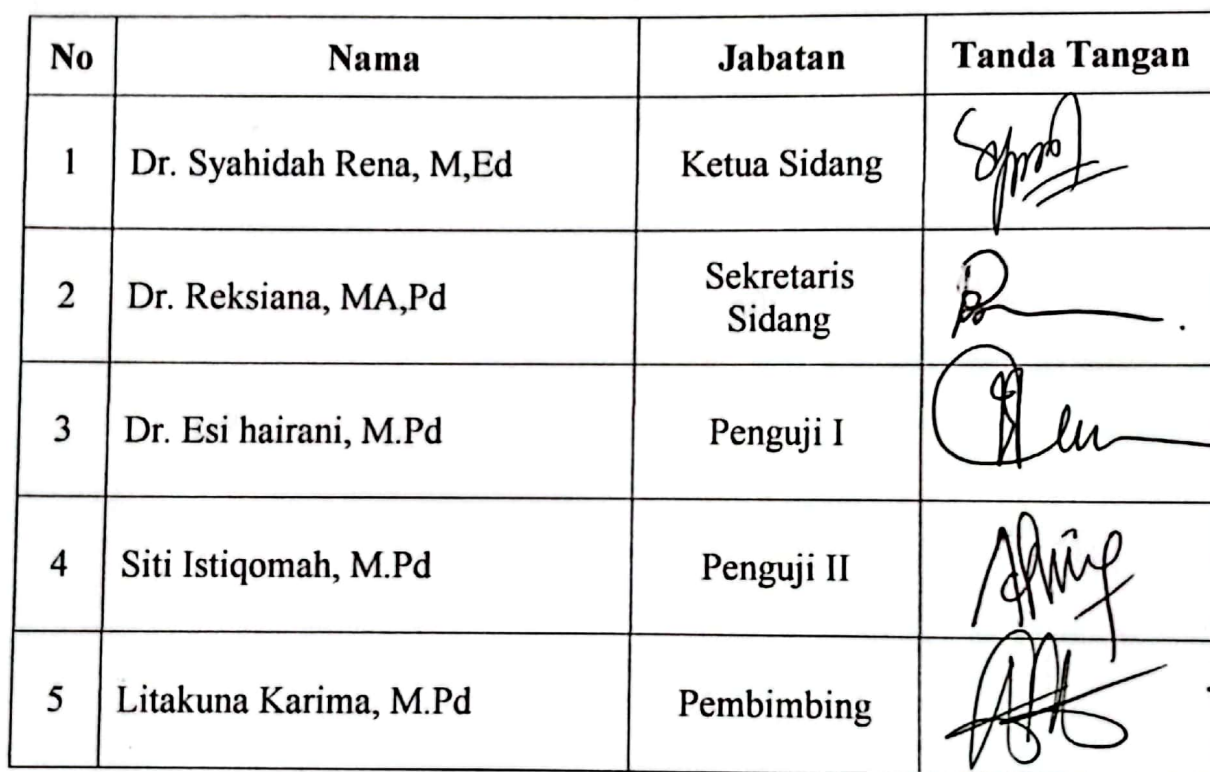 No Nama Jabatan Tanda Tangan
1 Dr. Syahidah Rena, M,Ed Ketua Sidang
2 Dr. Reksiana, MA,Pd Sekretaris
Sidang
3 Dr. Esi hairani, M.Pd Penguji I
4 Siti Istiqomah, M.Pd Penguji II
5 Litakuna Karima, M.Pd Pembimbing